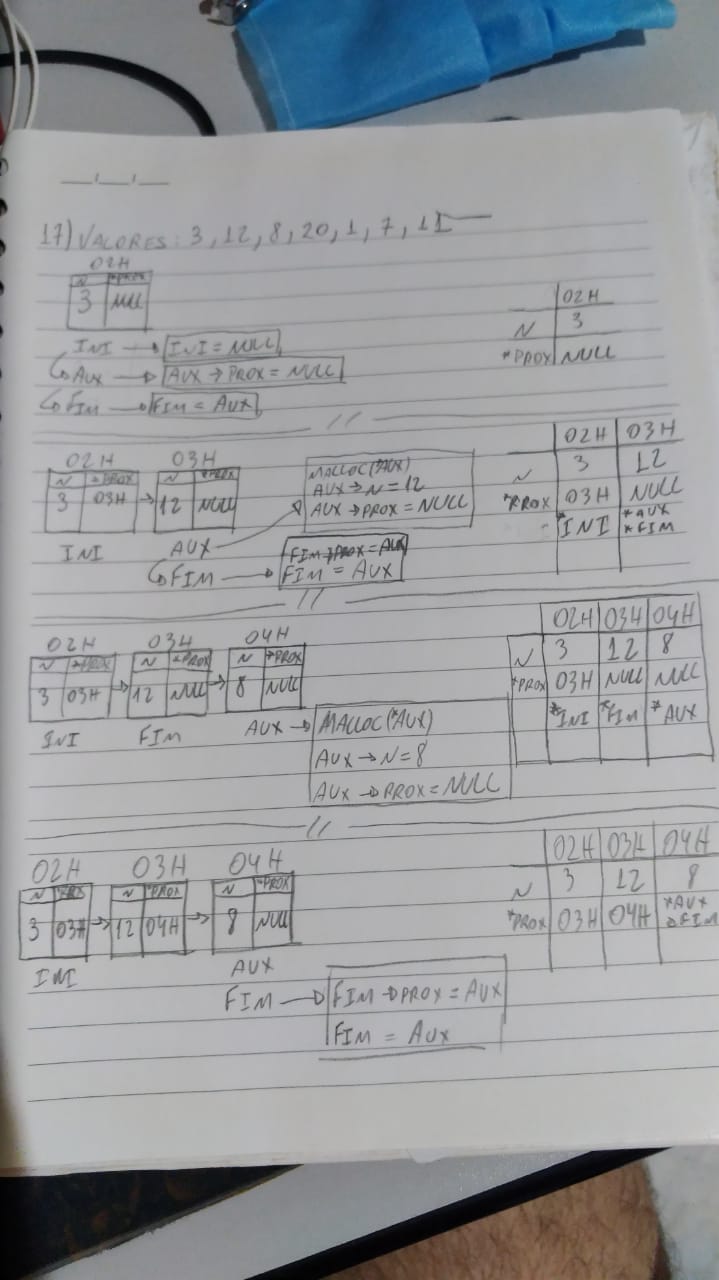 17) VALORES: 3, 12, 8, 20, 1, 7, 11
02H
N *PROX
3 NULL
INI → INI = NULL
↳ AUX → AUX → PROX = NULL
↳ FIM → FIM = AUX
02H
N 3
*PROX NULL
//
02H 03H
N *PROX N *PROX
3 03H → 12 NULL
INI AUX
↳ FIM
MALLOC(*AUX)
AUX → N = 12
AUX → PROX = NULL
FIM → PROX = AUX
FIM = AUX
02H 03H
N 3 12
*PROX 03H NULL
*INI *AUX
*FIM
//
02H 03H 04H
N *PROX N *PROX N *PROX
3 03H → 12 NULL → 8 NULL
INI FIM AUX →
MALLOC(*AUX)
AUX → N = 8
AUX → PROX = NULL
02H 03H 04H
N 3 12 8
*PROX 03H NULL NULL
*INI *FIM *AUX
//
02H 03H 04H
N *PROX N *PROX N *PROX
3 03H → 12 04H → 8 NULL
INI AUX
FIM → FIM → PROX = AUX
FIM = AUX
02H 03H 04H
N 3 12 8
*PROX 03H 04H *AUX
FIM